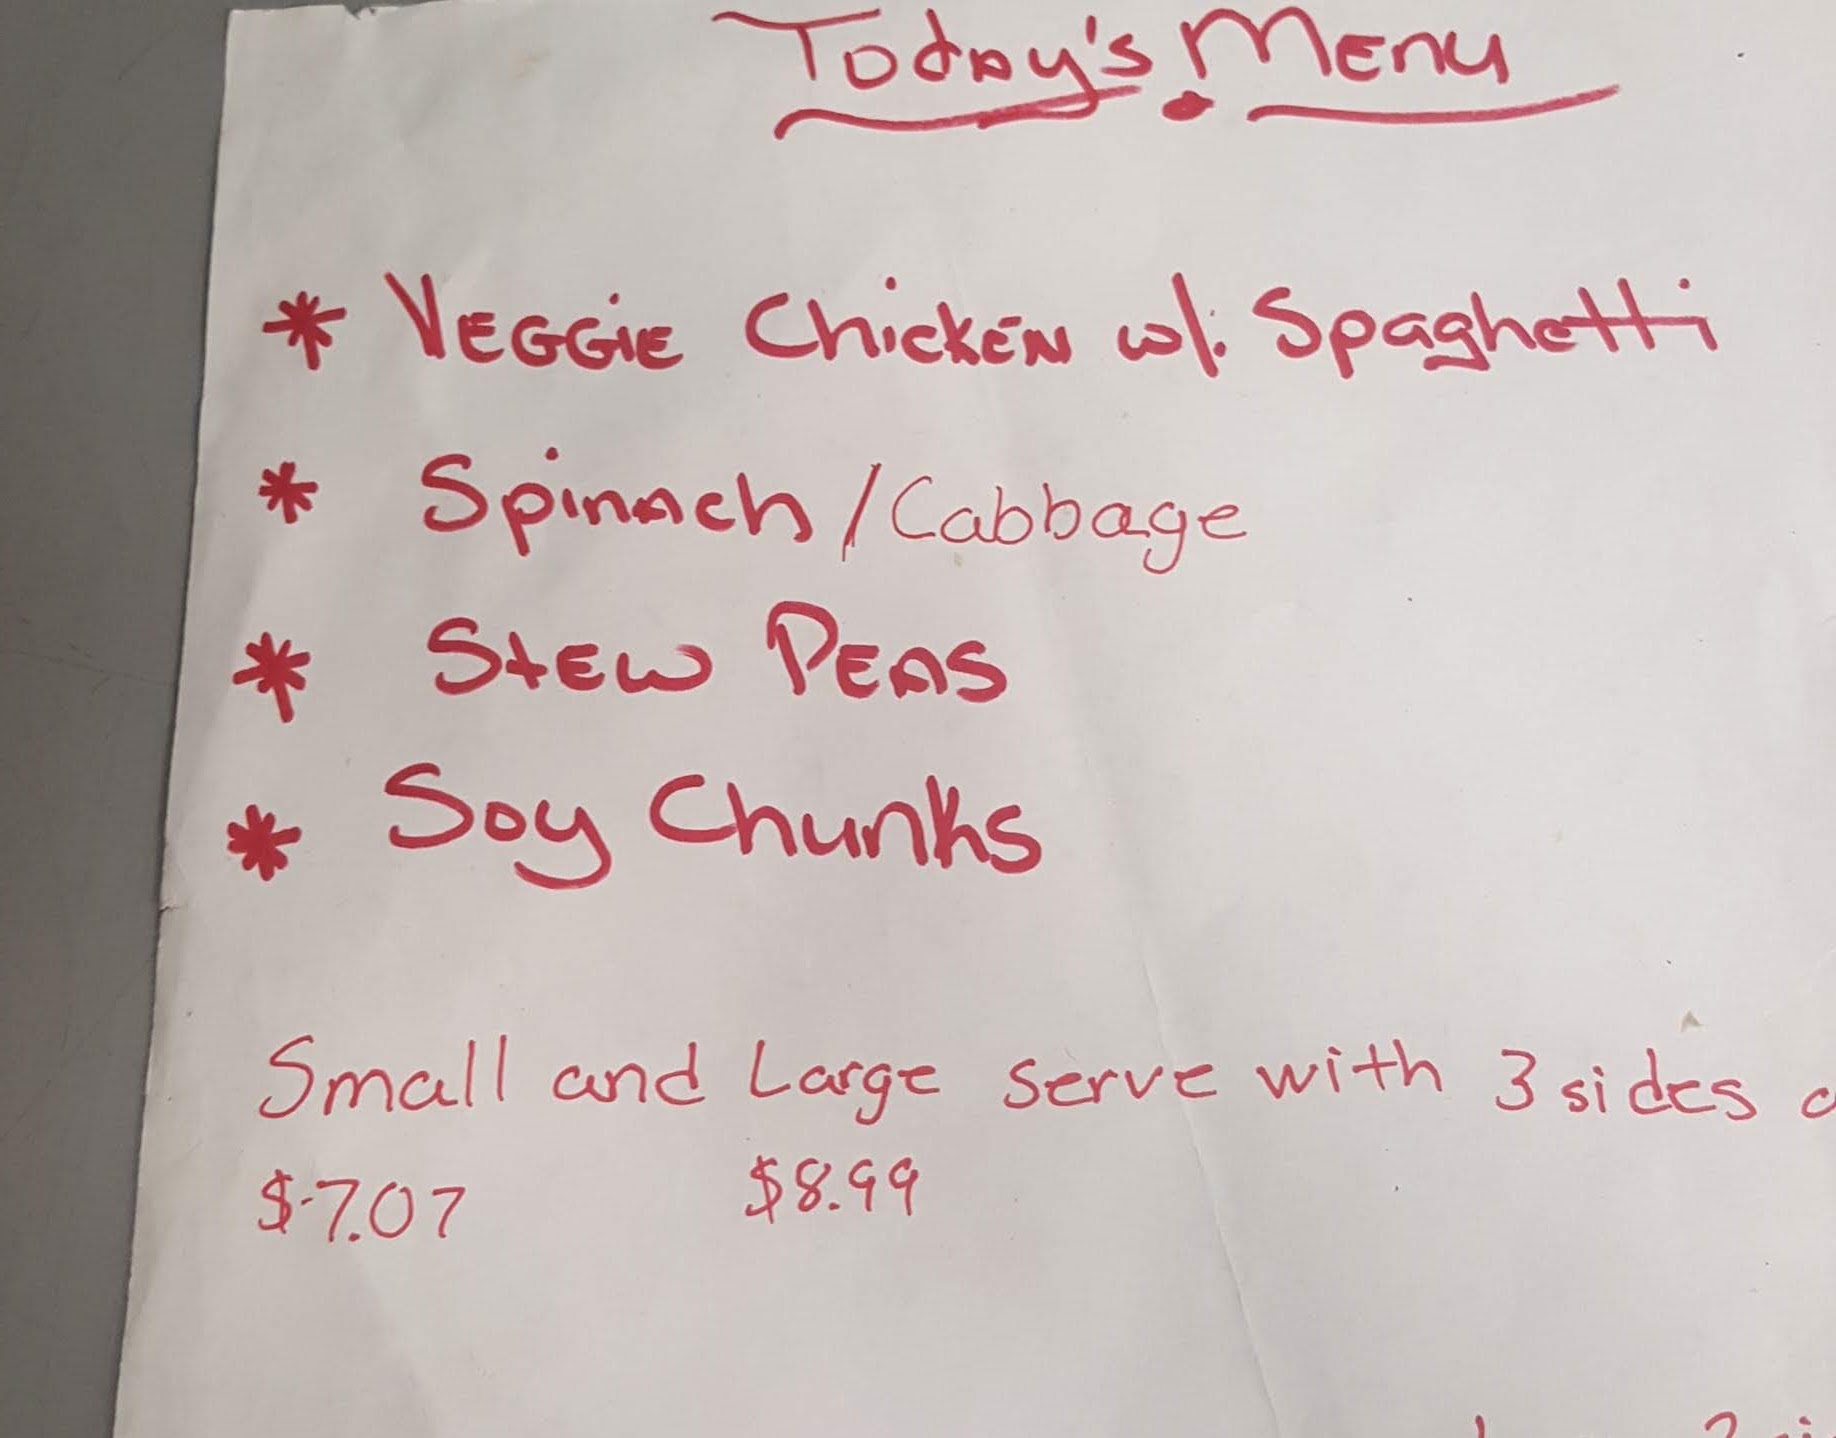 Today's Menu
* Veggie Chicken w/. Spaghetti
* Spinach / Cabbage
* Stew Peas
* Soy Chunks
Small and Large serve with 3 sides
$7.07 $8.99